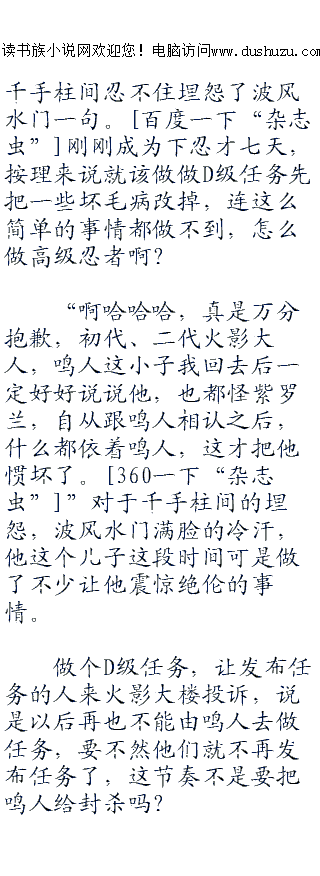 读书族小说网欢迎您！电脑访问www.dushuzu.com
千手柱间忍不住埋怨了波风
水门一句。[百度一下“杂志
虫”]刚刚成为下忍才七天，
按理来说就该做做D级任务先
把一些坏毛病改掉，连这么
简单的事情都做不到，怎么
做高级忍者啊？
“啊哈哈哈，真是万分
抱歉，初代、二代火影大
人，鸣人这小子我回去后一
定好好说说他，也都怪紫罗
兰，自从跟鸣人相认之后，
什么都依着鸣人，这才把他
惯坏了。[360一下“杂志
虫”]”对于千手柱间的埋
怨，波风水门满脸的冷汗，
他这个儿子这段时间可是做
了不少让他震惊绝伦的事
情。
做个D级任务，让发布任
务的人来火影大楼投诉，说
是以后再也不能由鸣人去做
任务，要不然他们就不再发
布任务了，这节奏不是要把
鸣人给封杀吗？